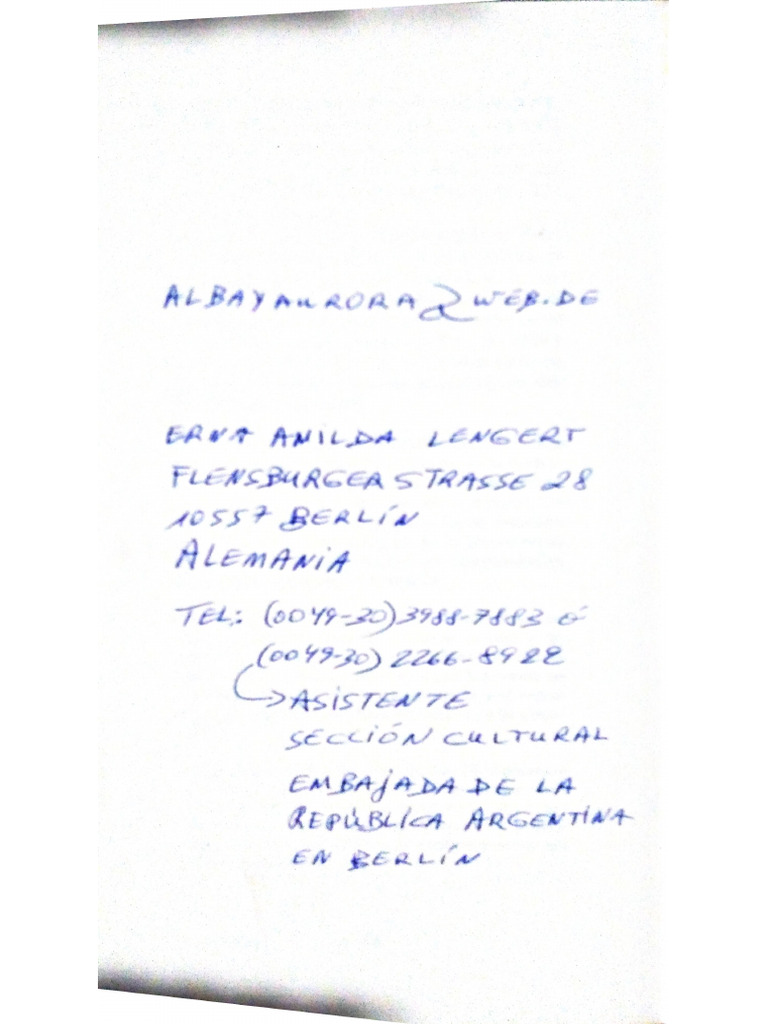 ALBAYAURORA@WEB.DE
ERNA ANILDA LENGERT
FLENSBURGER STRASSE 28
10557 BERLÍN
ALEMANIA
TEL: (0049-30) 3988-7883 ó
(0049-30) 2266-8922
→ ASISTENTE
SECCIÓN CULTURAL
EMBAJADA DE LA
REPÚBLICA ARGENTINA
EN BERLÍN